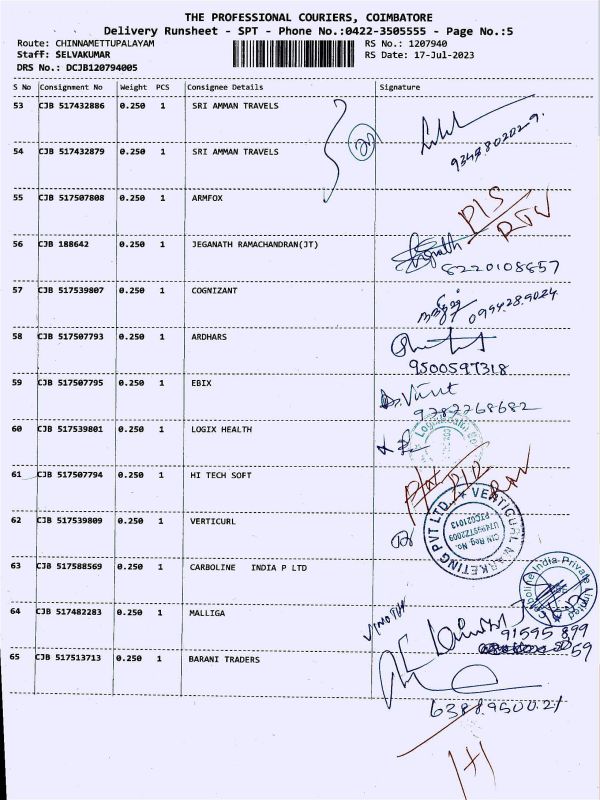 THE PROFESSIONAL COURIERS, COIMBATORE
Delivery Runsheet - SPT - Phone No.:0422-3505555 - Page No.:5
Route: CHINNAMETTUPALAYAM RS No.: 1207940
Staff: SELVAKUMAR RS Date: 17-Jul-2023
DRS No.: DCJB120794005
S No Consignment No Weight PCS Consignee Details Signature
53 CJB 517432886 0.250 1 SRI AMMAN TRAVELS
54 CJB 517432879 0.250 1 SRI AMMAN TRAVELS
55 CJB 517507808 0.250 1 ARMFOX
56 CJB 188642 0.250 1 JEGANATH RAMACHANDRAN(JT)
8220108657
57 CJB 517539807 0.250 1 COGNIZANT
58 CJB 517507793 0.250 1 ARDHARS
9500597318
59 CJB 517507795 0.250 1 EBIX
9787268682
60 CJB 517539801 0.250 1 LOGIX HEALTH
61 CJB 517507794 0.250 1 HI TECH SOFT
62 CJB 517539809 0.250 1 VERTICURL
VERTICURL MARKETING PVT LTD
CIN Reg. No.
63 CJB 517588569 0.250 1 CARBOLINE INDIA P LTD
Carboline India Private Limited
64 CJB 517482283 0.250 1 MALLIGA
91595 899
59
65 CJB 517513713 0.250 1 BARANI TRADERS